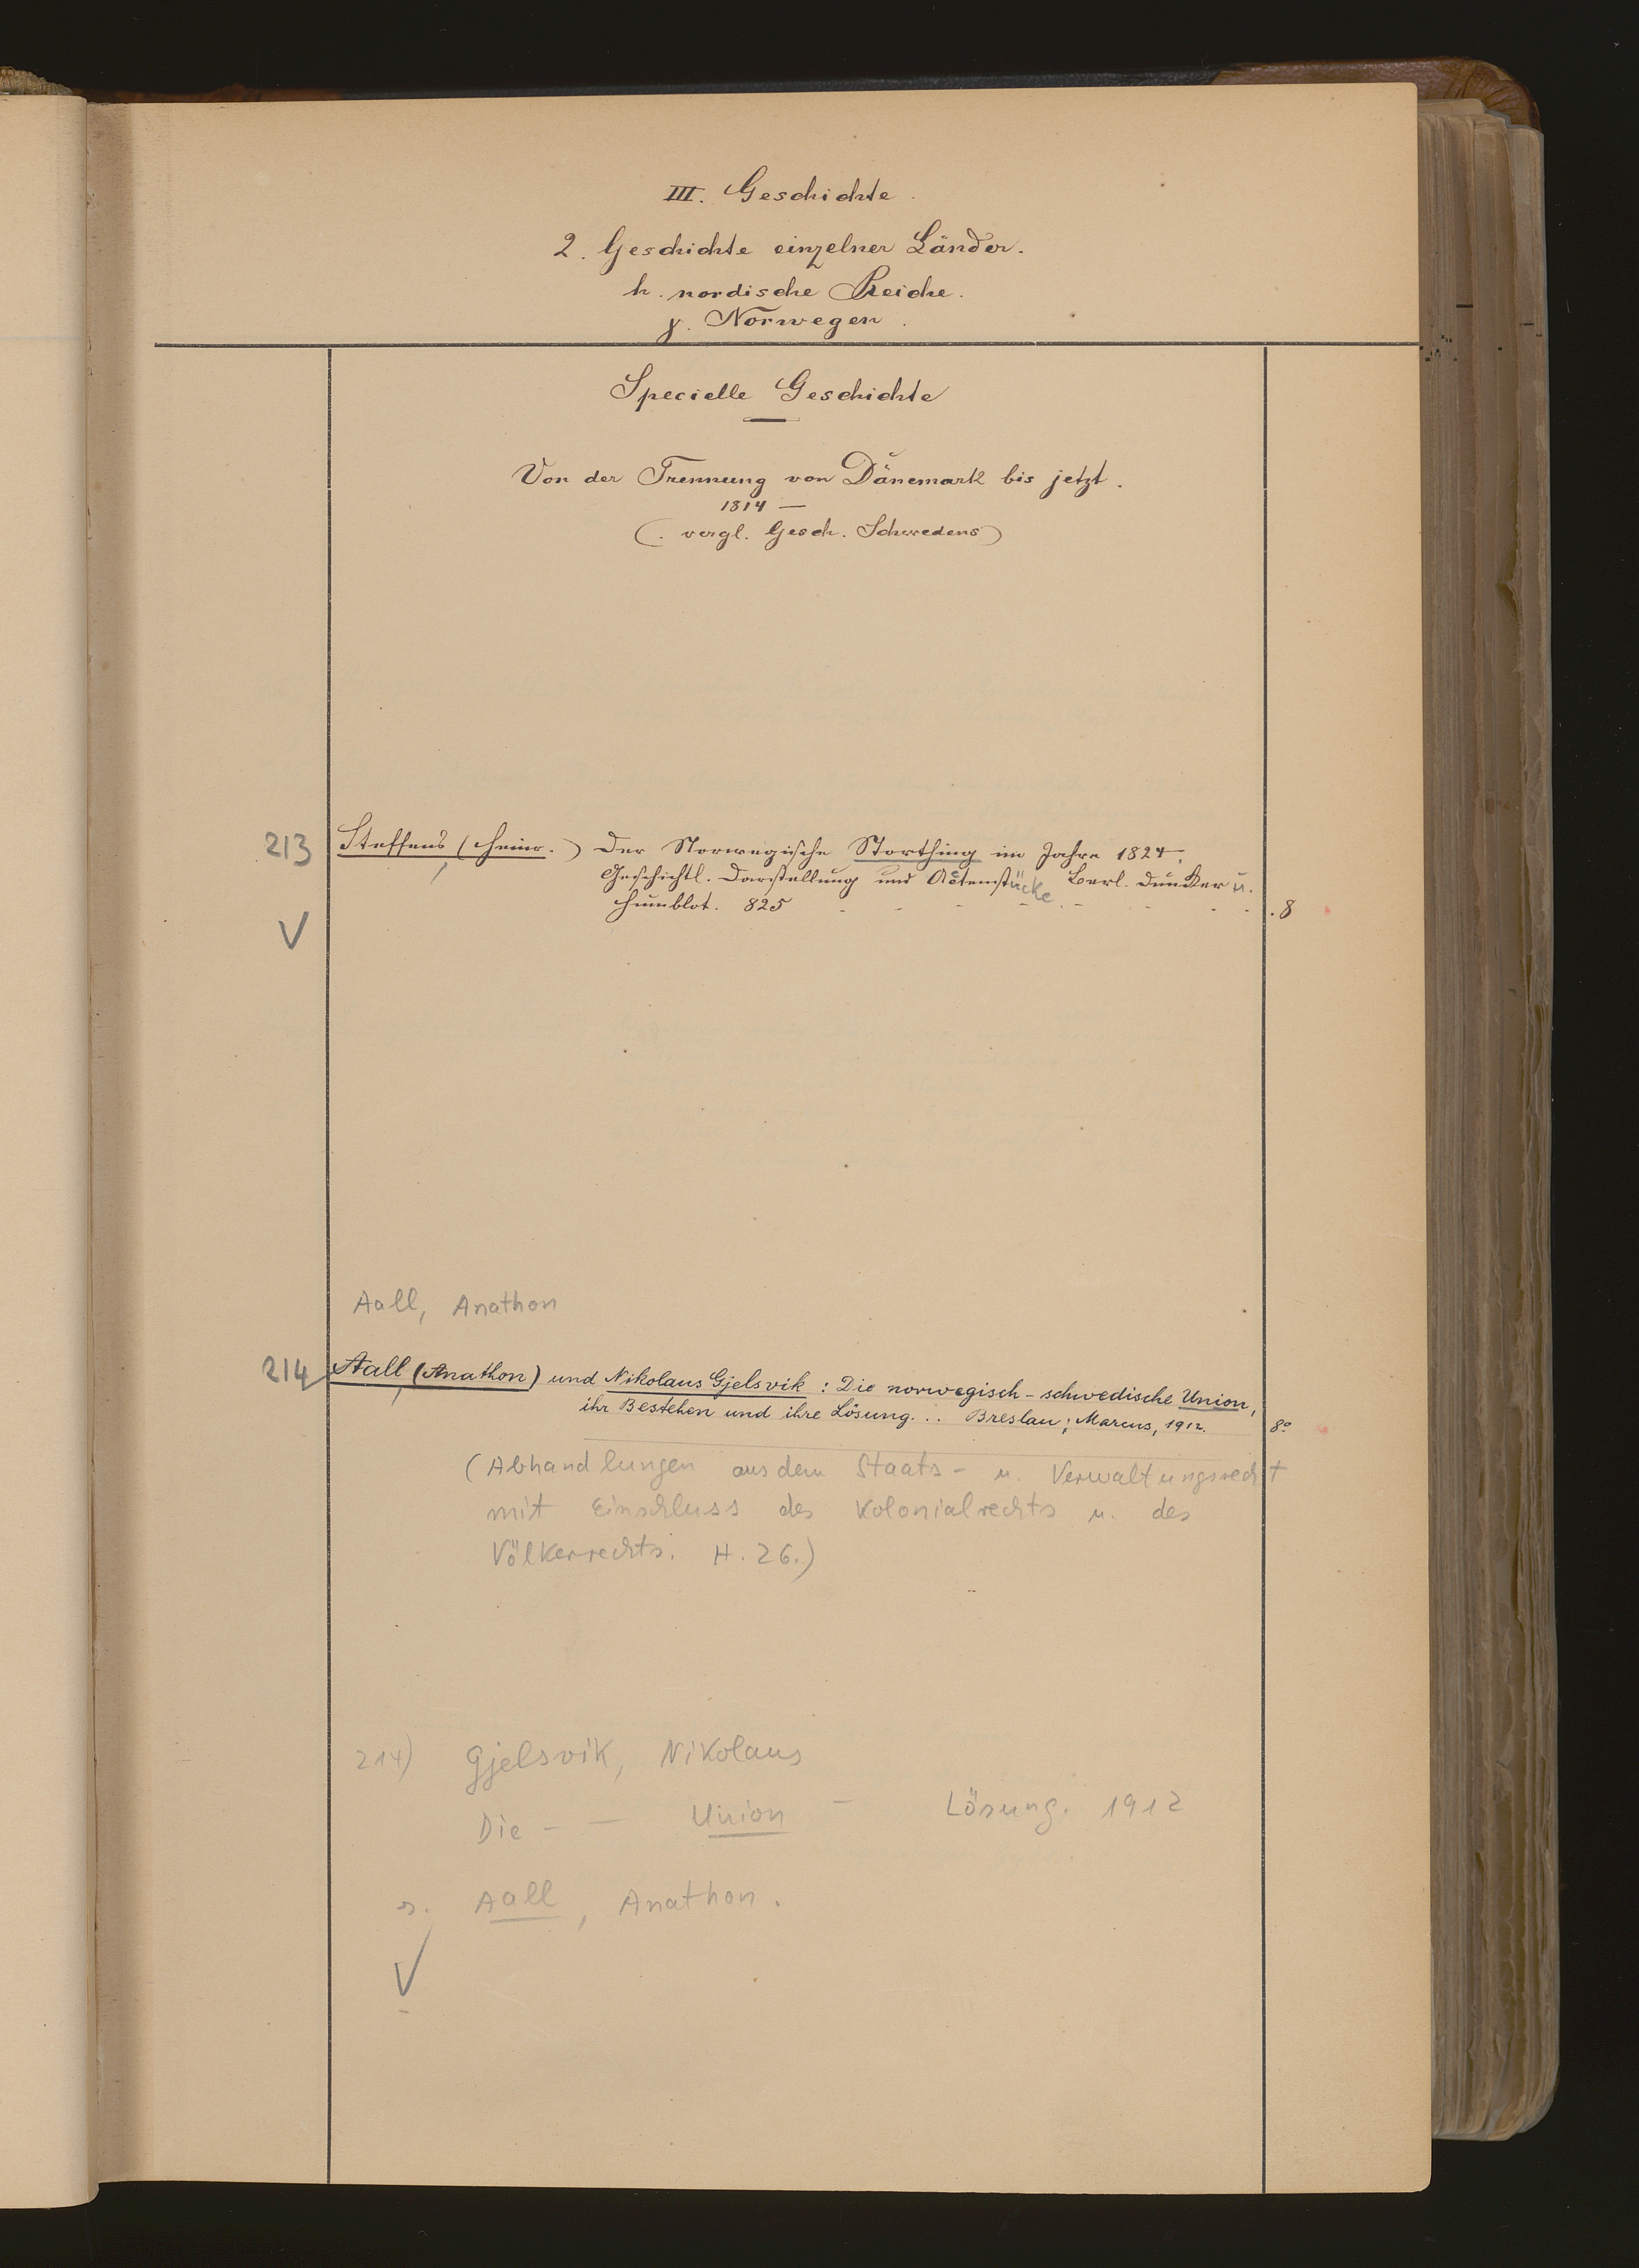 III. Geschichte.
2. Geschichte einzelner Länder.
h. nordische Reiche.
γ. Norwegen.
Specielle Geschichte
Von der Trennung von Dänemark bis jetzt.
1814 —
(. vergl. Gesch. Schwedens)
213 Steffens, (Heinr.) Der Norwegische Storthing im Jahre 1824.
Geschichtl. Darstellung und Actenstücke. Berl. Duncker u.
Humblot. 825 - - - - - - - - . 8
V
Aall, Anathon
214 Aall, (Anathon) und Nikolaus Gjelsvik : Die norwegisch-schwedische Union,
ihr Bestehen und ihre Lösung... Breslau; Marcus, 1912. 8°
(Abhandlungen aus dem Staats- u. Verwaltungsrecht
mit Einschluss des Kolonialrechts u. des
Völkerrechts. H. 26.)
214) Gjelsvik, Nikolaus
Die - — Union — Lösung. 1912
s. Aall, Anathon.
V